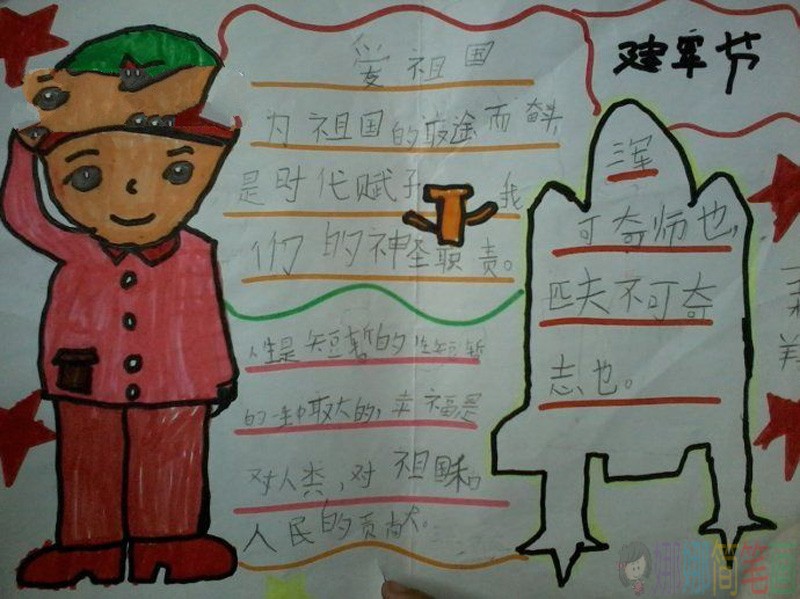 建军节
爱祖国
为祖国的前途而奋斗
是时代赋予我
们的神圣职责。
人生是短暂的
的一生中最大的,幸福是
对人类,对祖国和
人民的贡献。
三军
可夺师也,
匹夫不可夺
志也。
简笔画